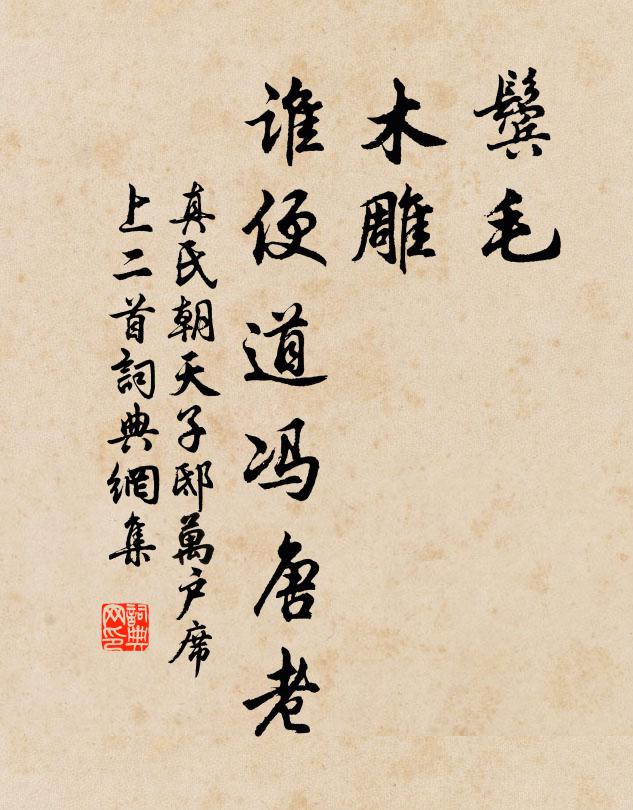 鬓毛
木雕
谁便道冯唐老
真氏朝天子邸萬户席
上二首詞典網集
詞典网印